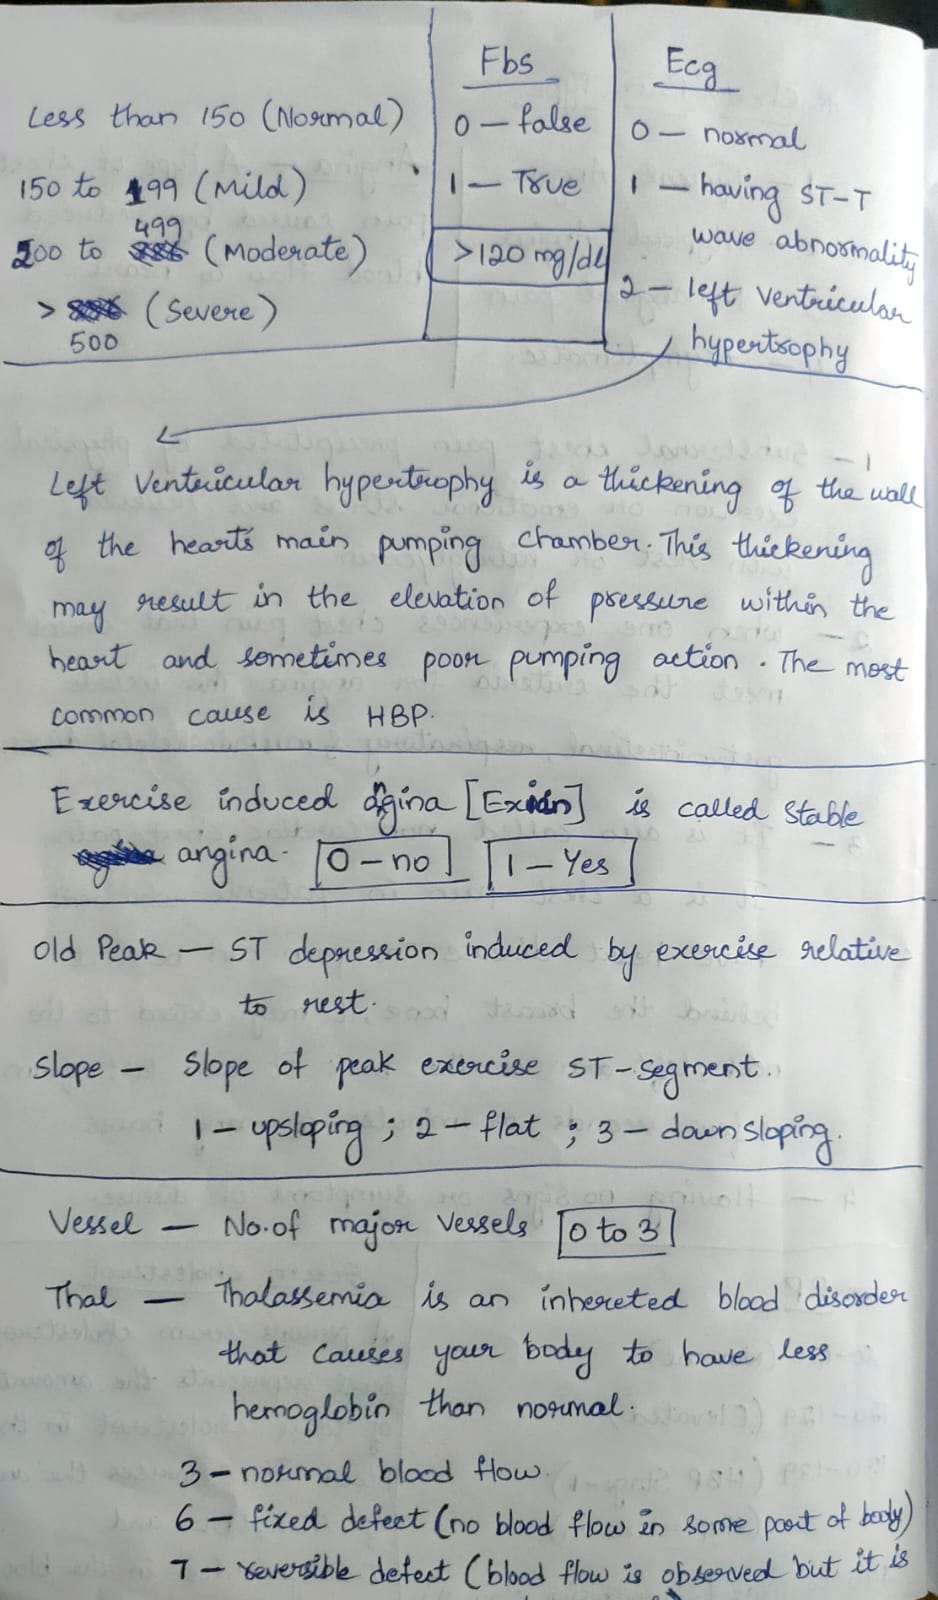 Less than 150 (Normal)
150 to 199 (Mild)
200 to 499 (Moderate)
> 500 (Severe)
Fbs
0 — false
1 — True
>120 mg/dl
Ecg
0 — normal
1 — having ST-T
wave abnormality
2 — left ventricular
hypertrophy
Left Ventricular hypertrophy is a thickening of the wall
of the heart's main pumping chamber. This thickening
may result in the elevation of pressure within the
heart and sometimes poor pumping action. The most
common cause is HBP.
Exercise induced angina [Exian] is called stable
angina. 0 — no 1 — Yes
Old Peak — ST depression induced by exercise relative
to rest.
Slope — Slope of peak exercise ST-segment.
1 — upsloping ; 2 — flat ; 3 — down sloping.
Vessel — No. of major vessels 0 to 3
Thal — Thalassemia is an inhereted blood disorder
that causes your body to have less
hemoglobin than normal.
3 — normal blood flow.
6 — fixed defect (no blood flow in some part of body)
7 — reversible defect (blood flow is observed but it is